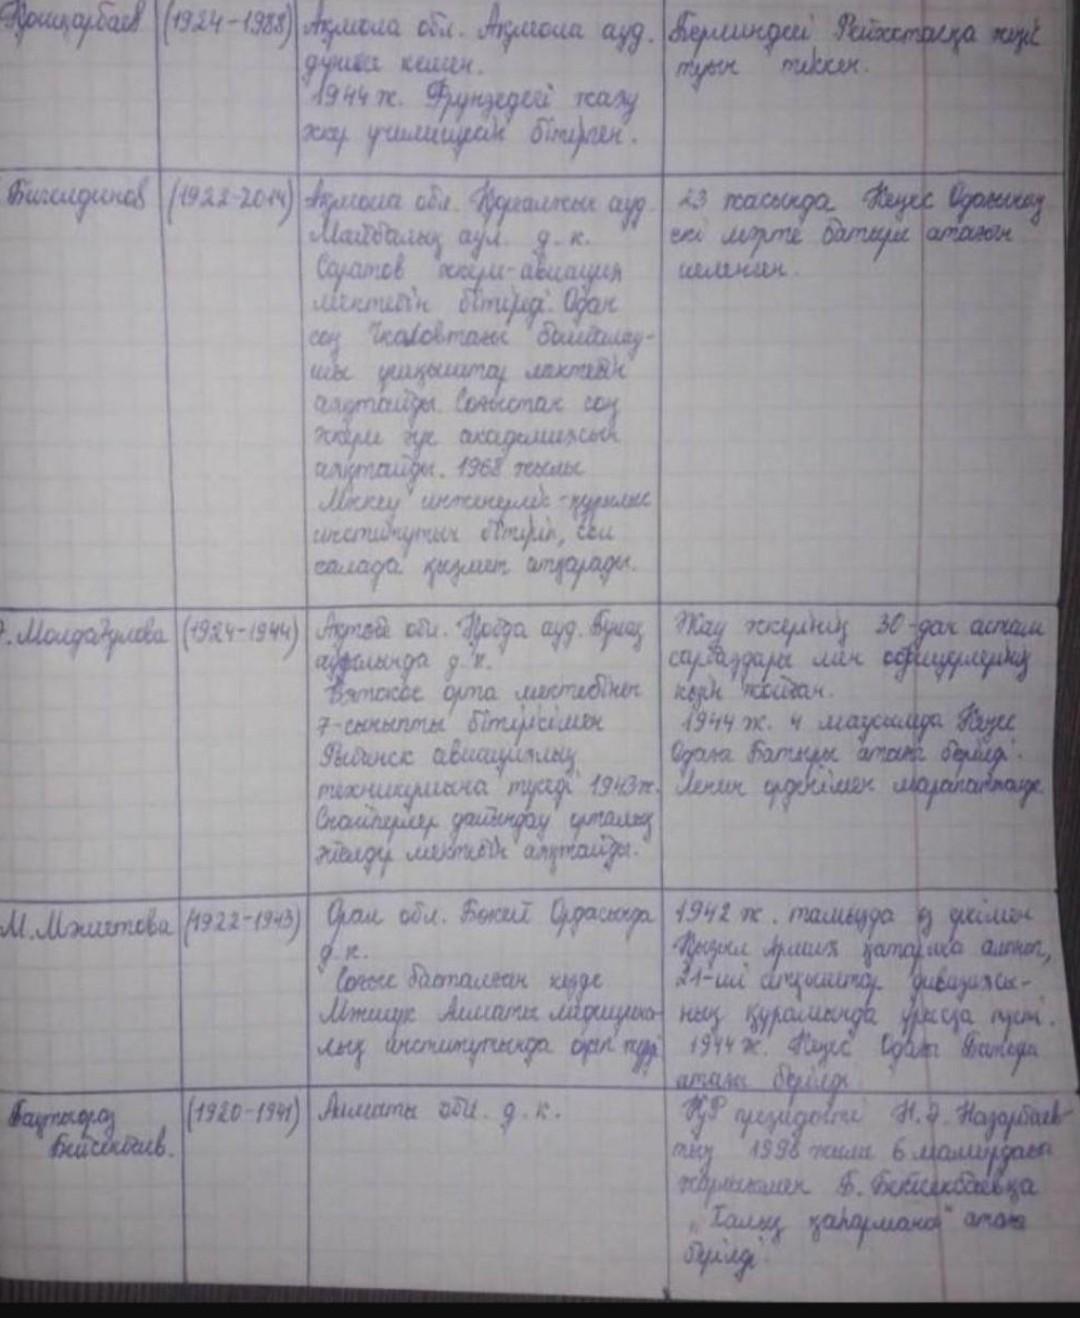 Қошқарбаев
(1924-1988)
Ақмола обл. Ақмола ауд.
дүниеге келген.
1944 ж. Фрунзедегі жаяу
әскер училищесін бітірген.
Берлиндегі Рейхстагқа жеңіс
туын тіккен.
Бигелдинов
(1922-2014)
Ақмола обл. Қорғалжын ауд.
Майбалық аул. д.к.
Саратов әскери-авиация
мектебін бітіреді. Одан
соң Чкаловтағы бомбалау-
шы ұшқыштар мектебін
аяқтайды. Соғыстан соң
Әскери әуе академиясын
аяқтайды. 1968 жылы
Мәскеу инженерлік-құрылыс
институтын бітіріп, сол
салада қызмет атқарады.
23 жасында Кеңес Одағының
екі мәрте батыры атағын
иеленген.
Ә. Молдағұлова
(1924-1944)
Ақтөбе обл. Қобда ауд. Бұлақ
ауылында д.к.
Вятское орта мектебінен
7-сыныпты бітірісімен
Рыбинск авициялық
техникумына түседі 1943 ж.
Снайперлер дайындау орталық
әйелдер мектебін аяқтайды.
Жау әскерінің 30-дан астам
сарбаздары мен офицерлерінің
көзін жойған.
1944 ж. 4 маусымда Кеңес
Одағы Батыры атағы берілді.
Ленин орденімен марапатталды
М. Мәметова
(1922-1943)
Орал обл. Бөкей Ордасында
д.к.
Соғыс басталған кезде
Мәншүк Алматы медицина-
лық институтында оқып жүрді
1942 ж. тамызда өз еркімен
Қызыл Армия қатарына алынып,
21-ші атқыштар дивизиясы-
ның құрамында ұрысқа түсті.
1944 ж. Кеңес Одағы Батыры
атағы берілді.
Баутыораз
Бейсекбаев.
(1920-1941)
Алматы обл. д.к.
ҚР президенті Н.Ә. Назарбаев-
тың 1998 жылы 6 мамырдағы
жарлығымен Б. Бейсекбаевқа
"Халық қаһарманы" атағы
берілді.